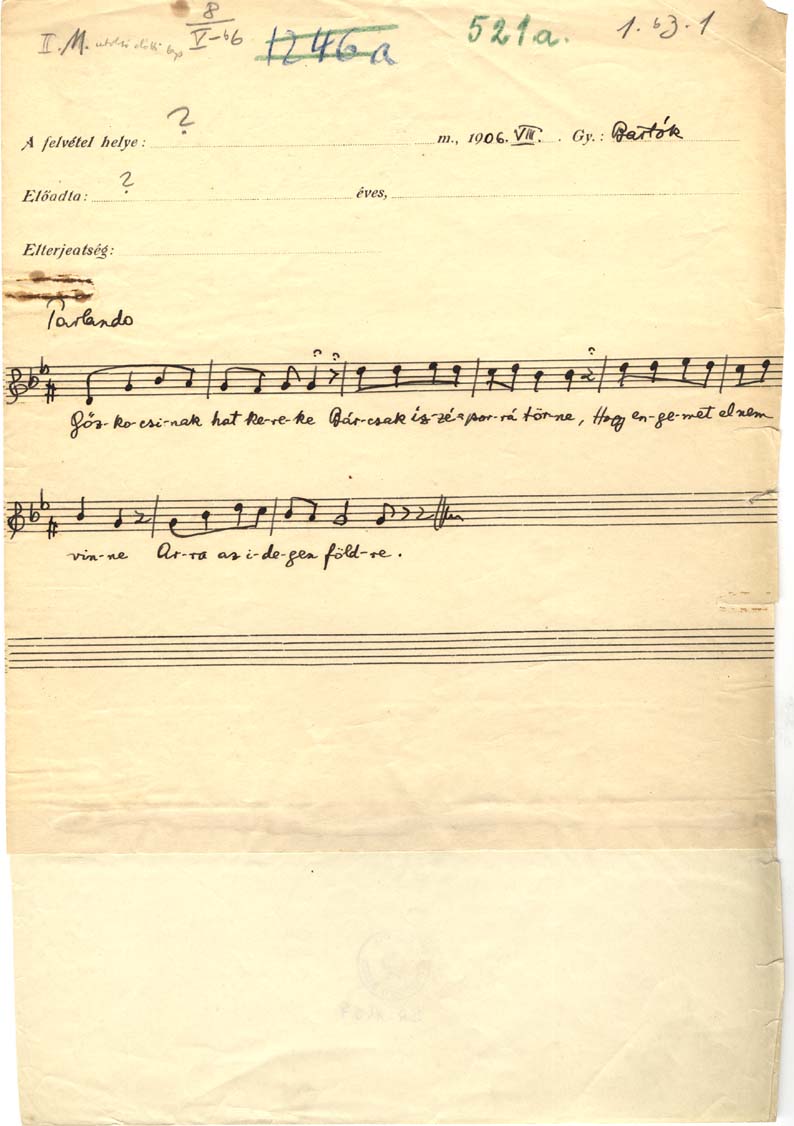 8
II. M. V-b6 1246a 521a. 1. b3. 1
A felvétel helye: ? m., 1906. VIII. Gy.: Bartók
Előadta: ? éves,
Elterjeatség:
Parlando
Gőz-ko-csi-nak hat ke-re-ke Bár-csak íz-zé-por-rá tör-ne, Hogy en-ge-met el nem
vin-ne Ar-ra az i-de-gen föld-re.